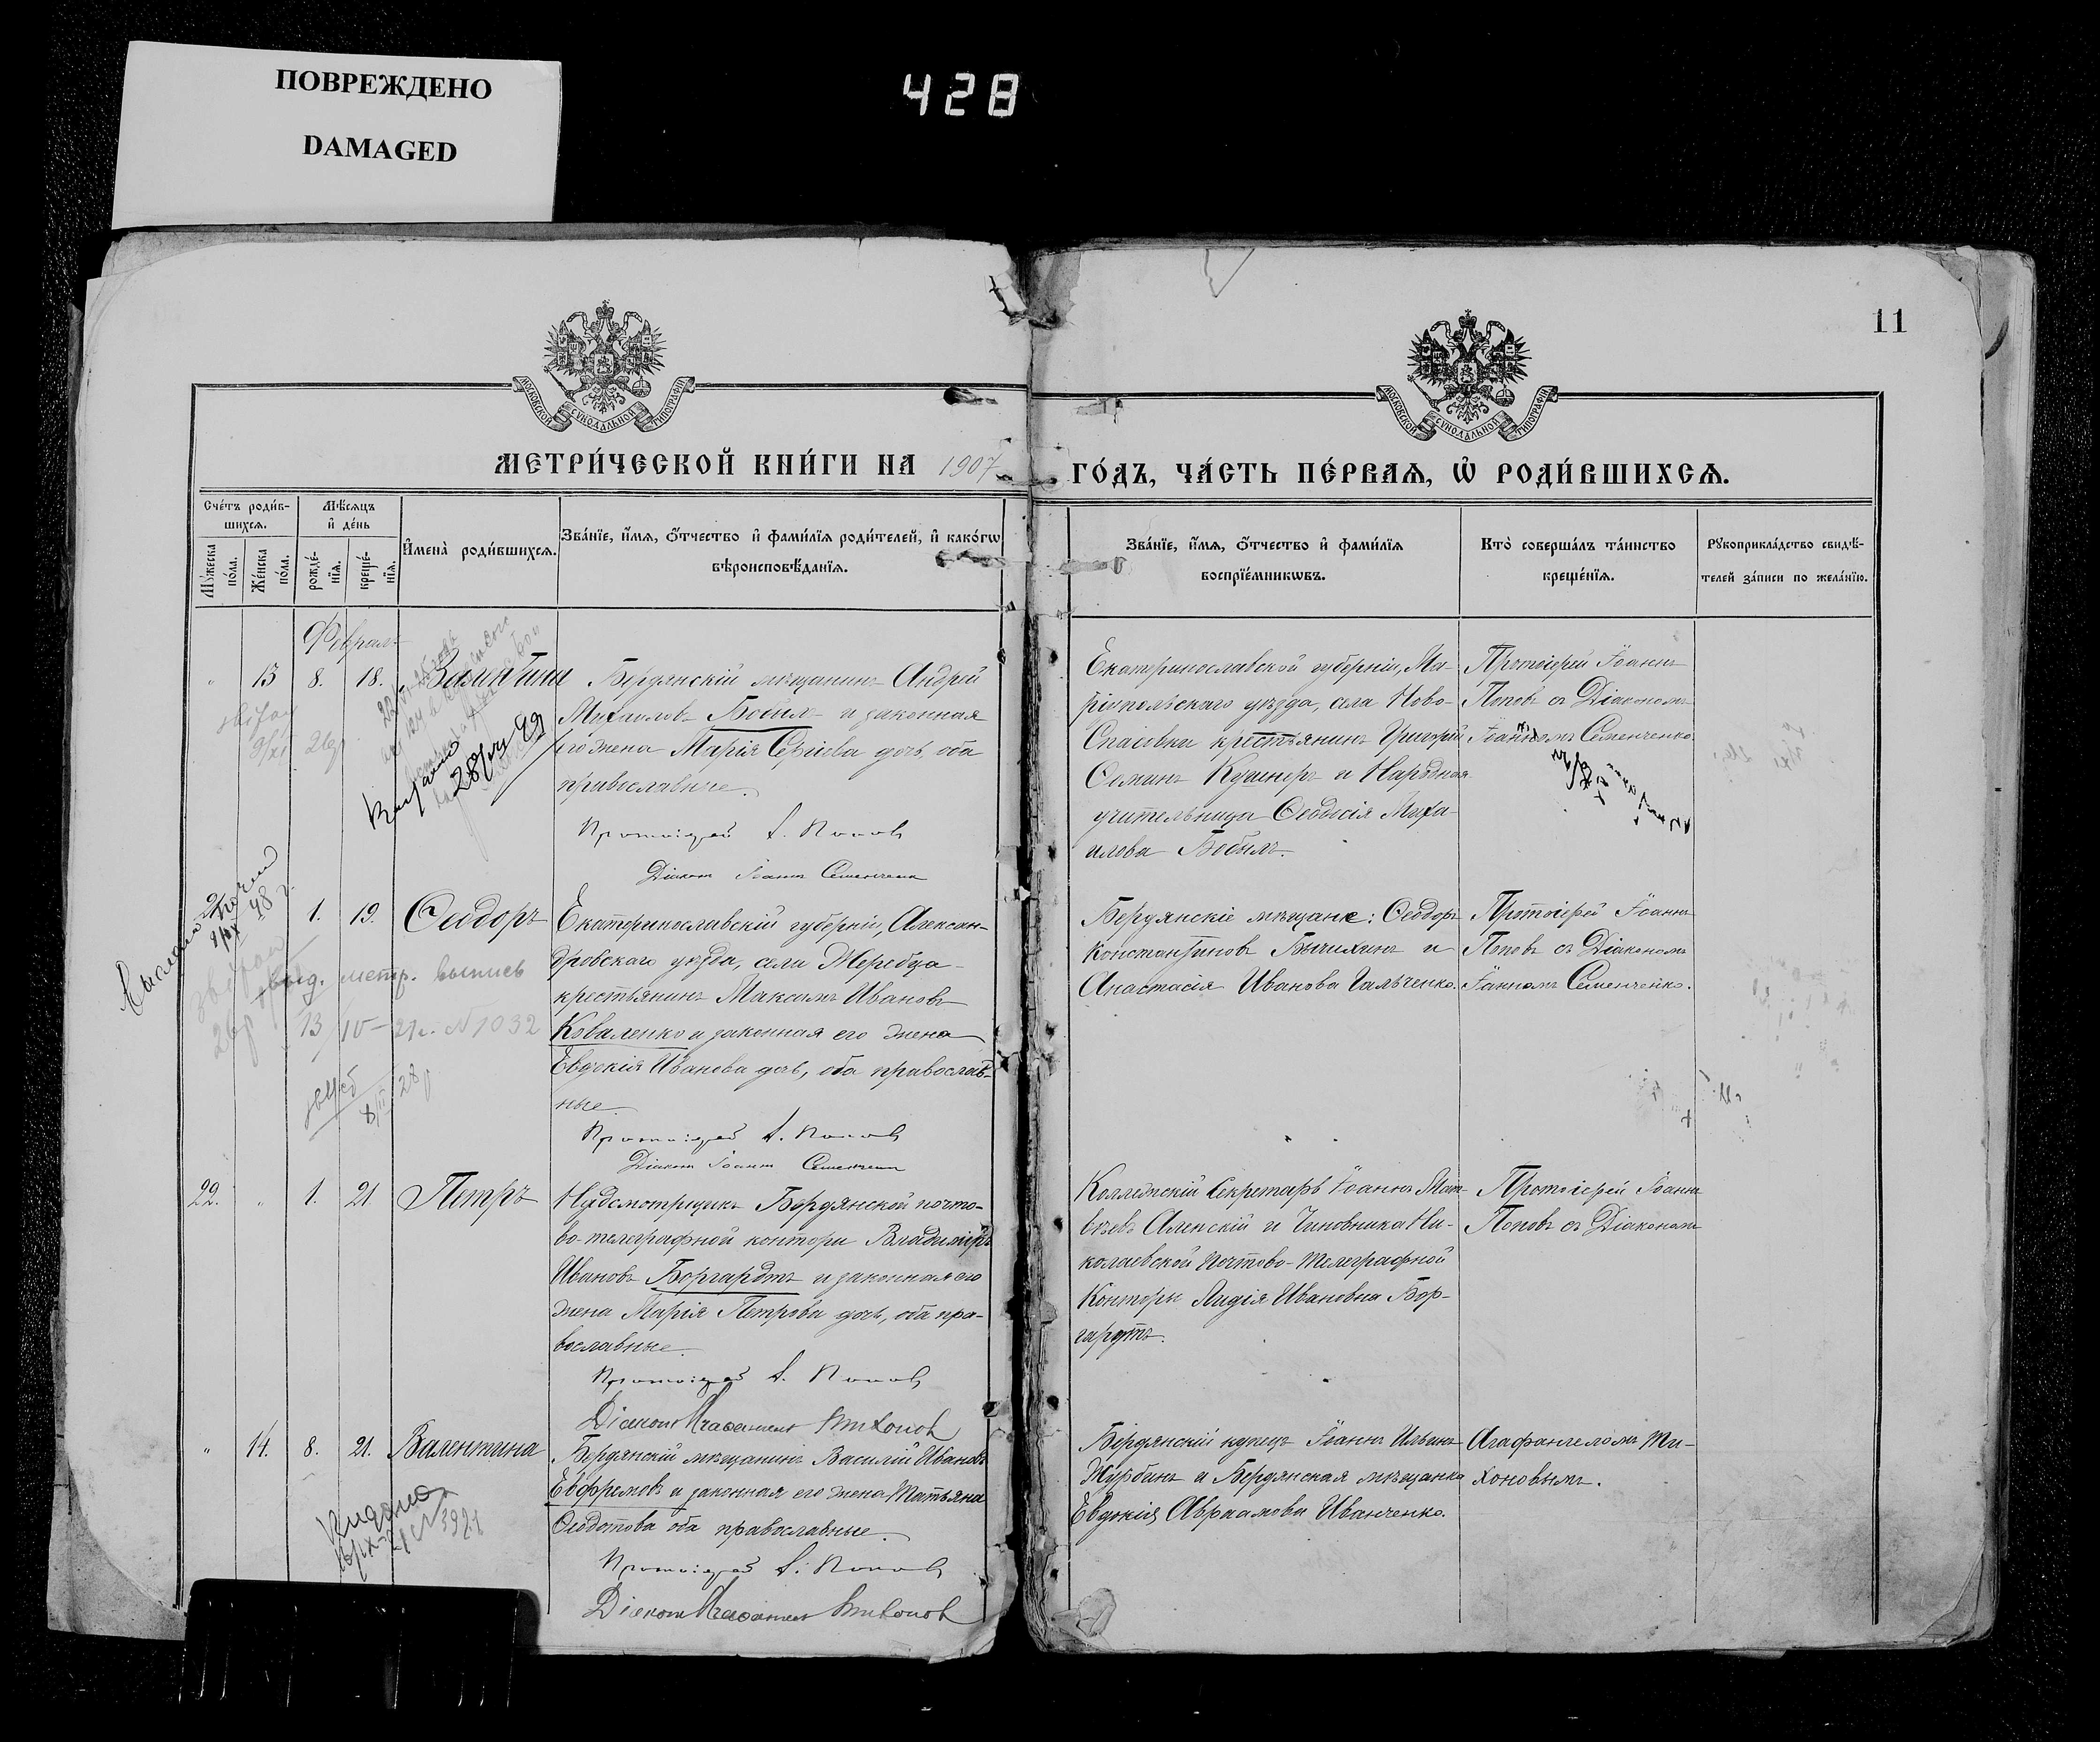 ПОВРЕЖДЕНО
DAMAGED
428
11
МОСКОВСКОЙ СѴНОДАЛЬНОЙ ТИПОГРАФІИ
МОСКОВСКОЙ СѴНОДАЛЬНОЙ ТИПОГРАФІИ
МЕТРИ́ЧЕСКОЙ КНИ́ГИ НА 1907
ГО́ДЪ, ЧА́СТЬ ПЕ́РВАѦ, Ѡ҆ РОДИ́ВШИХСѦ.
Сче́тъ роди́в-
шихсѧ.
Мꙋ́жеска
по́ла.
Же́нска
по́ла.
Мѣ́сѧцъ
и҆ де́нь
рожде́-
нїѧ.
креще́-
нїѧ.
И҆мена̀ роди́вшихсѧ.
Зва́нїе, и҆́мѧ, ѻ҆́тчество и҆ фами́лїѧ роди́телей, и҆ како́гѡ
вѣроисповѣ́данїѧ.
Зва́нїе, и҆́мѧ, ѻ҆́тчество и҆ фами́лїѧ
воспрїе́мникѡвъ.
Кто̀ соверша́лъ та́инство
креще́нїѧ.
Рꙋкоприкла́дство свидѣ́-
телей за́писи по жела́нїю.
Февраль
" 13 8. 18. Валентина
Бердянскій мѣщанинъ Андрей
Михаиловъ Бобыль и законная
его жена Марія Сергіева дочь, оба
православные.
Протоіерей І. Поповъ
Діаконъ Іоаннъ Семенченко
Екатеринославской губерніи, Ма-
ріупольскаго уѣзда, села Ново-
Спасовки крестьянинъ Григорій
Кушнеръ и Народная
учительница Ѳеодосія Миха-
илова Бобыль.
Протоіерей Іоаннъ
Поповъ съ Діакономъ
Іоанномъ Семенченко
Выдано 28/VII 42
1. 19. Ѳеодоръ
Екатеринославскій губерніи, Алексан-
дровскаго уѣзда, села Жеребца
крестьянинъ Максимъ Ивановъ
Коваленко и законная его жена
Евдокія Иванова дочь, оба православ-
ные.
Протоіерей І. Поповъ
Діаконъ Іоаннъ Семенченко
Бердянскіе мѣщане: Ѳеодоръ
Константиновъ Бычихинъ и
Анастасія Иванова Гальченко.
Протоіерей Іоаннъ
Поповъ съ Діакономъ
Іоанномъ Семенченко.
выд. метр. выпись
13/IV – 21г. N 1032
22. " 1. 21 Петръ
Надсмотрщикъ Бердянской почто-
во-телеграфной конторы Владиміръ
Ивановъ Боргардтъ и законная его
жена Марія Петрова дочь, оба пра-
вославные.
Протоіерей І. Поповъ
Діаконъ Агафангелъ Тихоновъ
Коллежскій Секретарь Іоаннъ Мат-
вѣевъ Аленскій и Чиновника Ни-
колаевской Почтово-Телеграфной
Конторы Лидія Ивановна Бор-
гардтъ.
Протоіерей Іоаннъ
Поповъ съ Діакономъ
" 14. 8. 21. Валентина
Бердянскій мѣщанинъ Василій Ивановъ
Евфремовъ и законная его жена Татьяна
Ѳедотова оба православные.
Протоіерей І. Поповъ
Діаконъ Агафангелъ Тихоновъ
Бердянскій купецъ Іоаннъ Ильинъ
Журбинъ и Бердянская мѣщанка
Евдокія Авраамова Иванченко.
Агафангеломъ Ти-
хоновымъ.